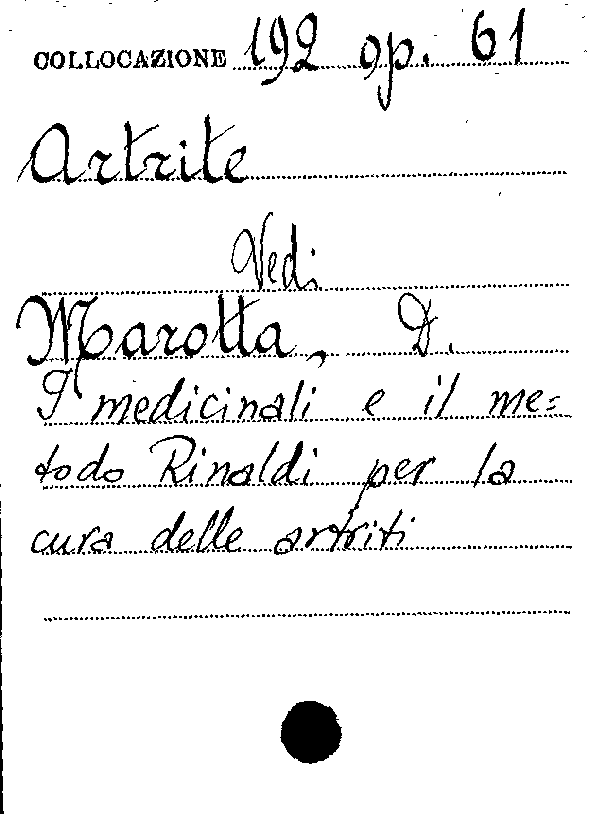 COLLOCAZIONE 192 op. 61
Artrite
Vedi
Marotta, D.
I medicinali e il me=
todo Rinaldi per la
cura delle artriti